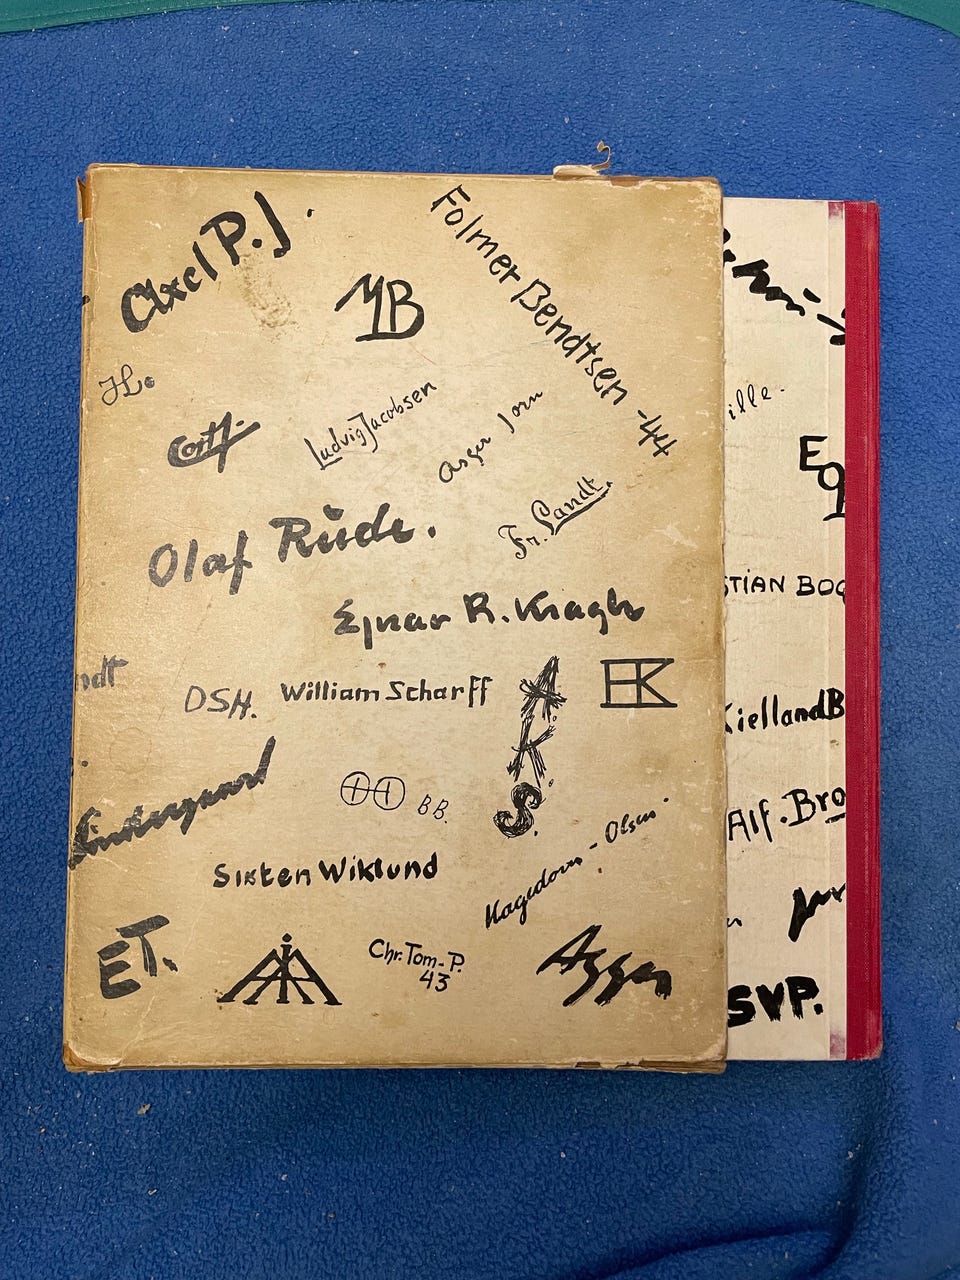 Axel P. J.
Folmer Bendtsen -44
MB
H.
Ludvig Jacobsen
Asger Jorn
ille.
Fr. Landt.
Olaf Rude.
Ejnar R. Kragh
STIAN BOG
ndt
DSH.
William Scharff
A.
K.
S.
EK
Kielland B
Søndergaard
BB.
Alf. Bro
Hagedorn-Olsen
Sixten Wiklund
ET.
Chr. Tom-P.
43
SVP.